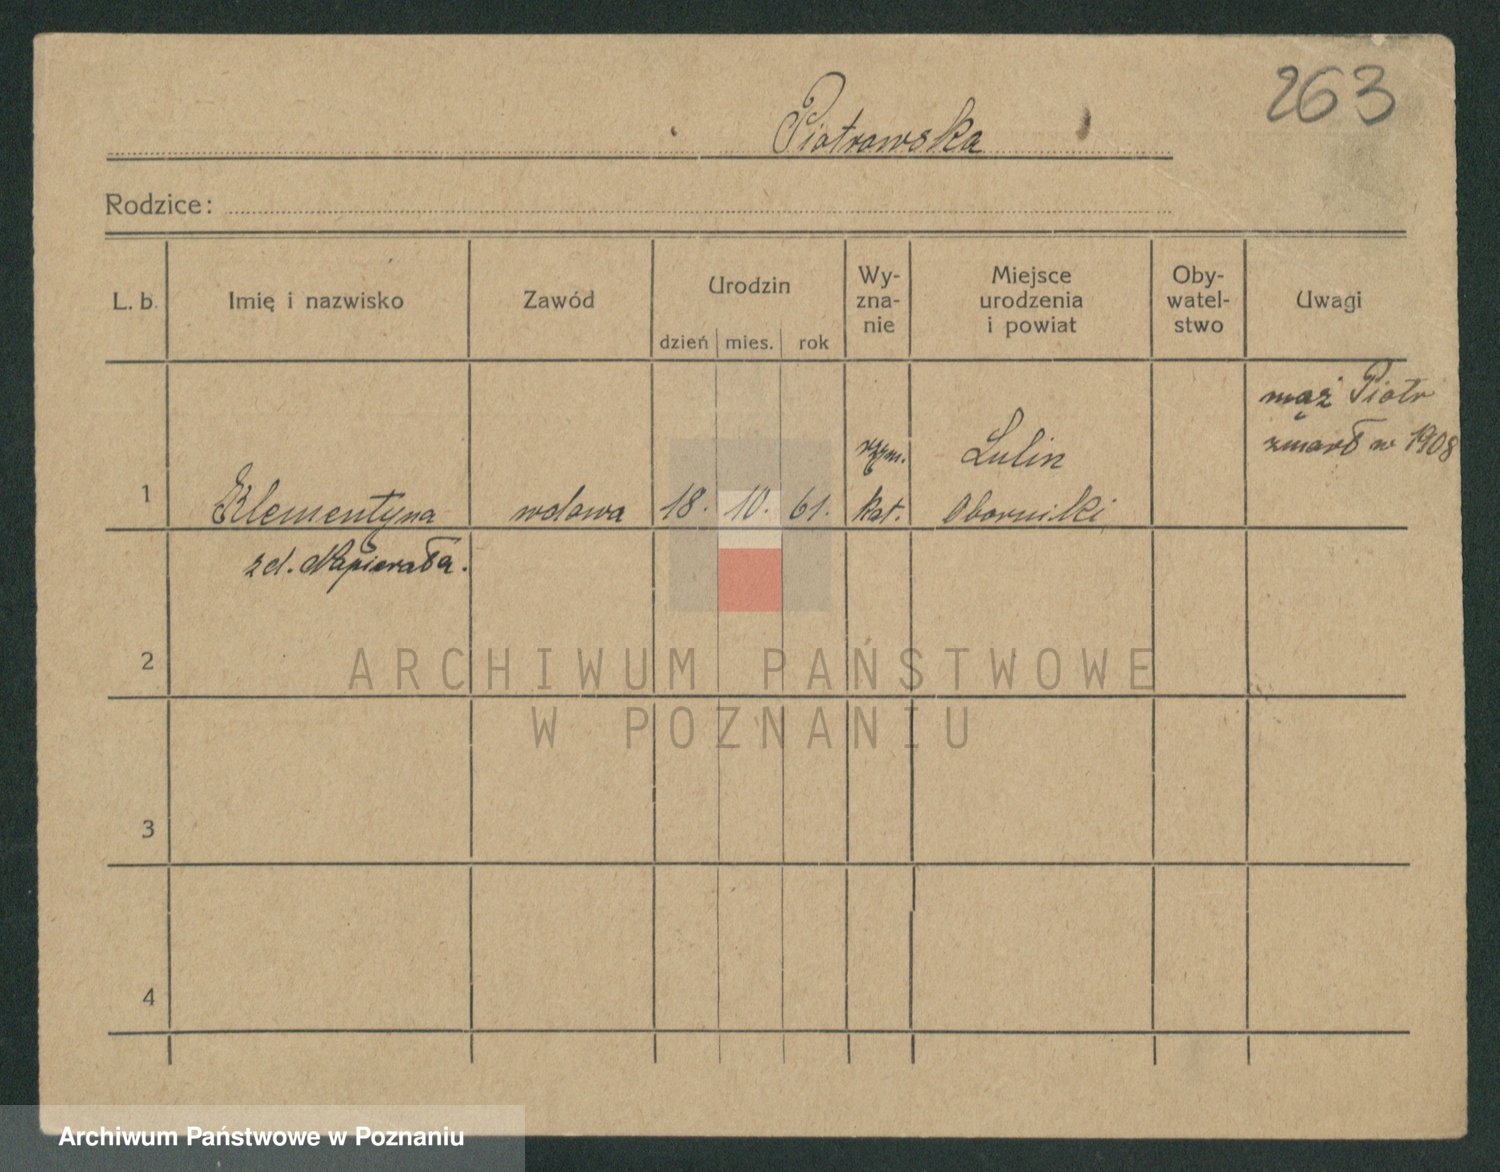 263
Piotrowska
Rodzice:
L. b.
Imię i nazwisko
Zawód
Urodzin
dzień mies. rok
Wy-
zna-
nie
Miejsce
urodzenia
i powiat
Oby-
watel-
stwo
Uwagi
1
Klementyna
zd. Napierała.
wdowa
18. 10. 61.
rzym.
kat.
Lulin
Oborniki
mąż Piotr
zmarł w 1908
2
3
4
ARCHIWUM PAŃSTWOWE
W POZNANIU
Archiwum Państwowe w Poznaniu